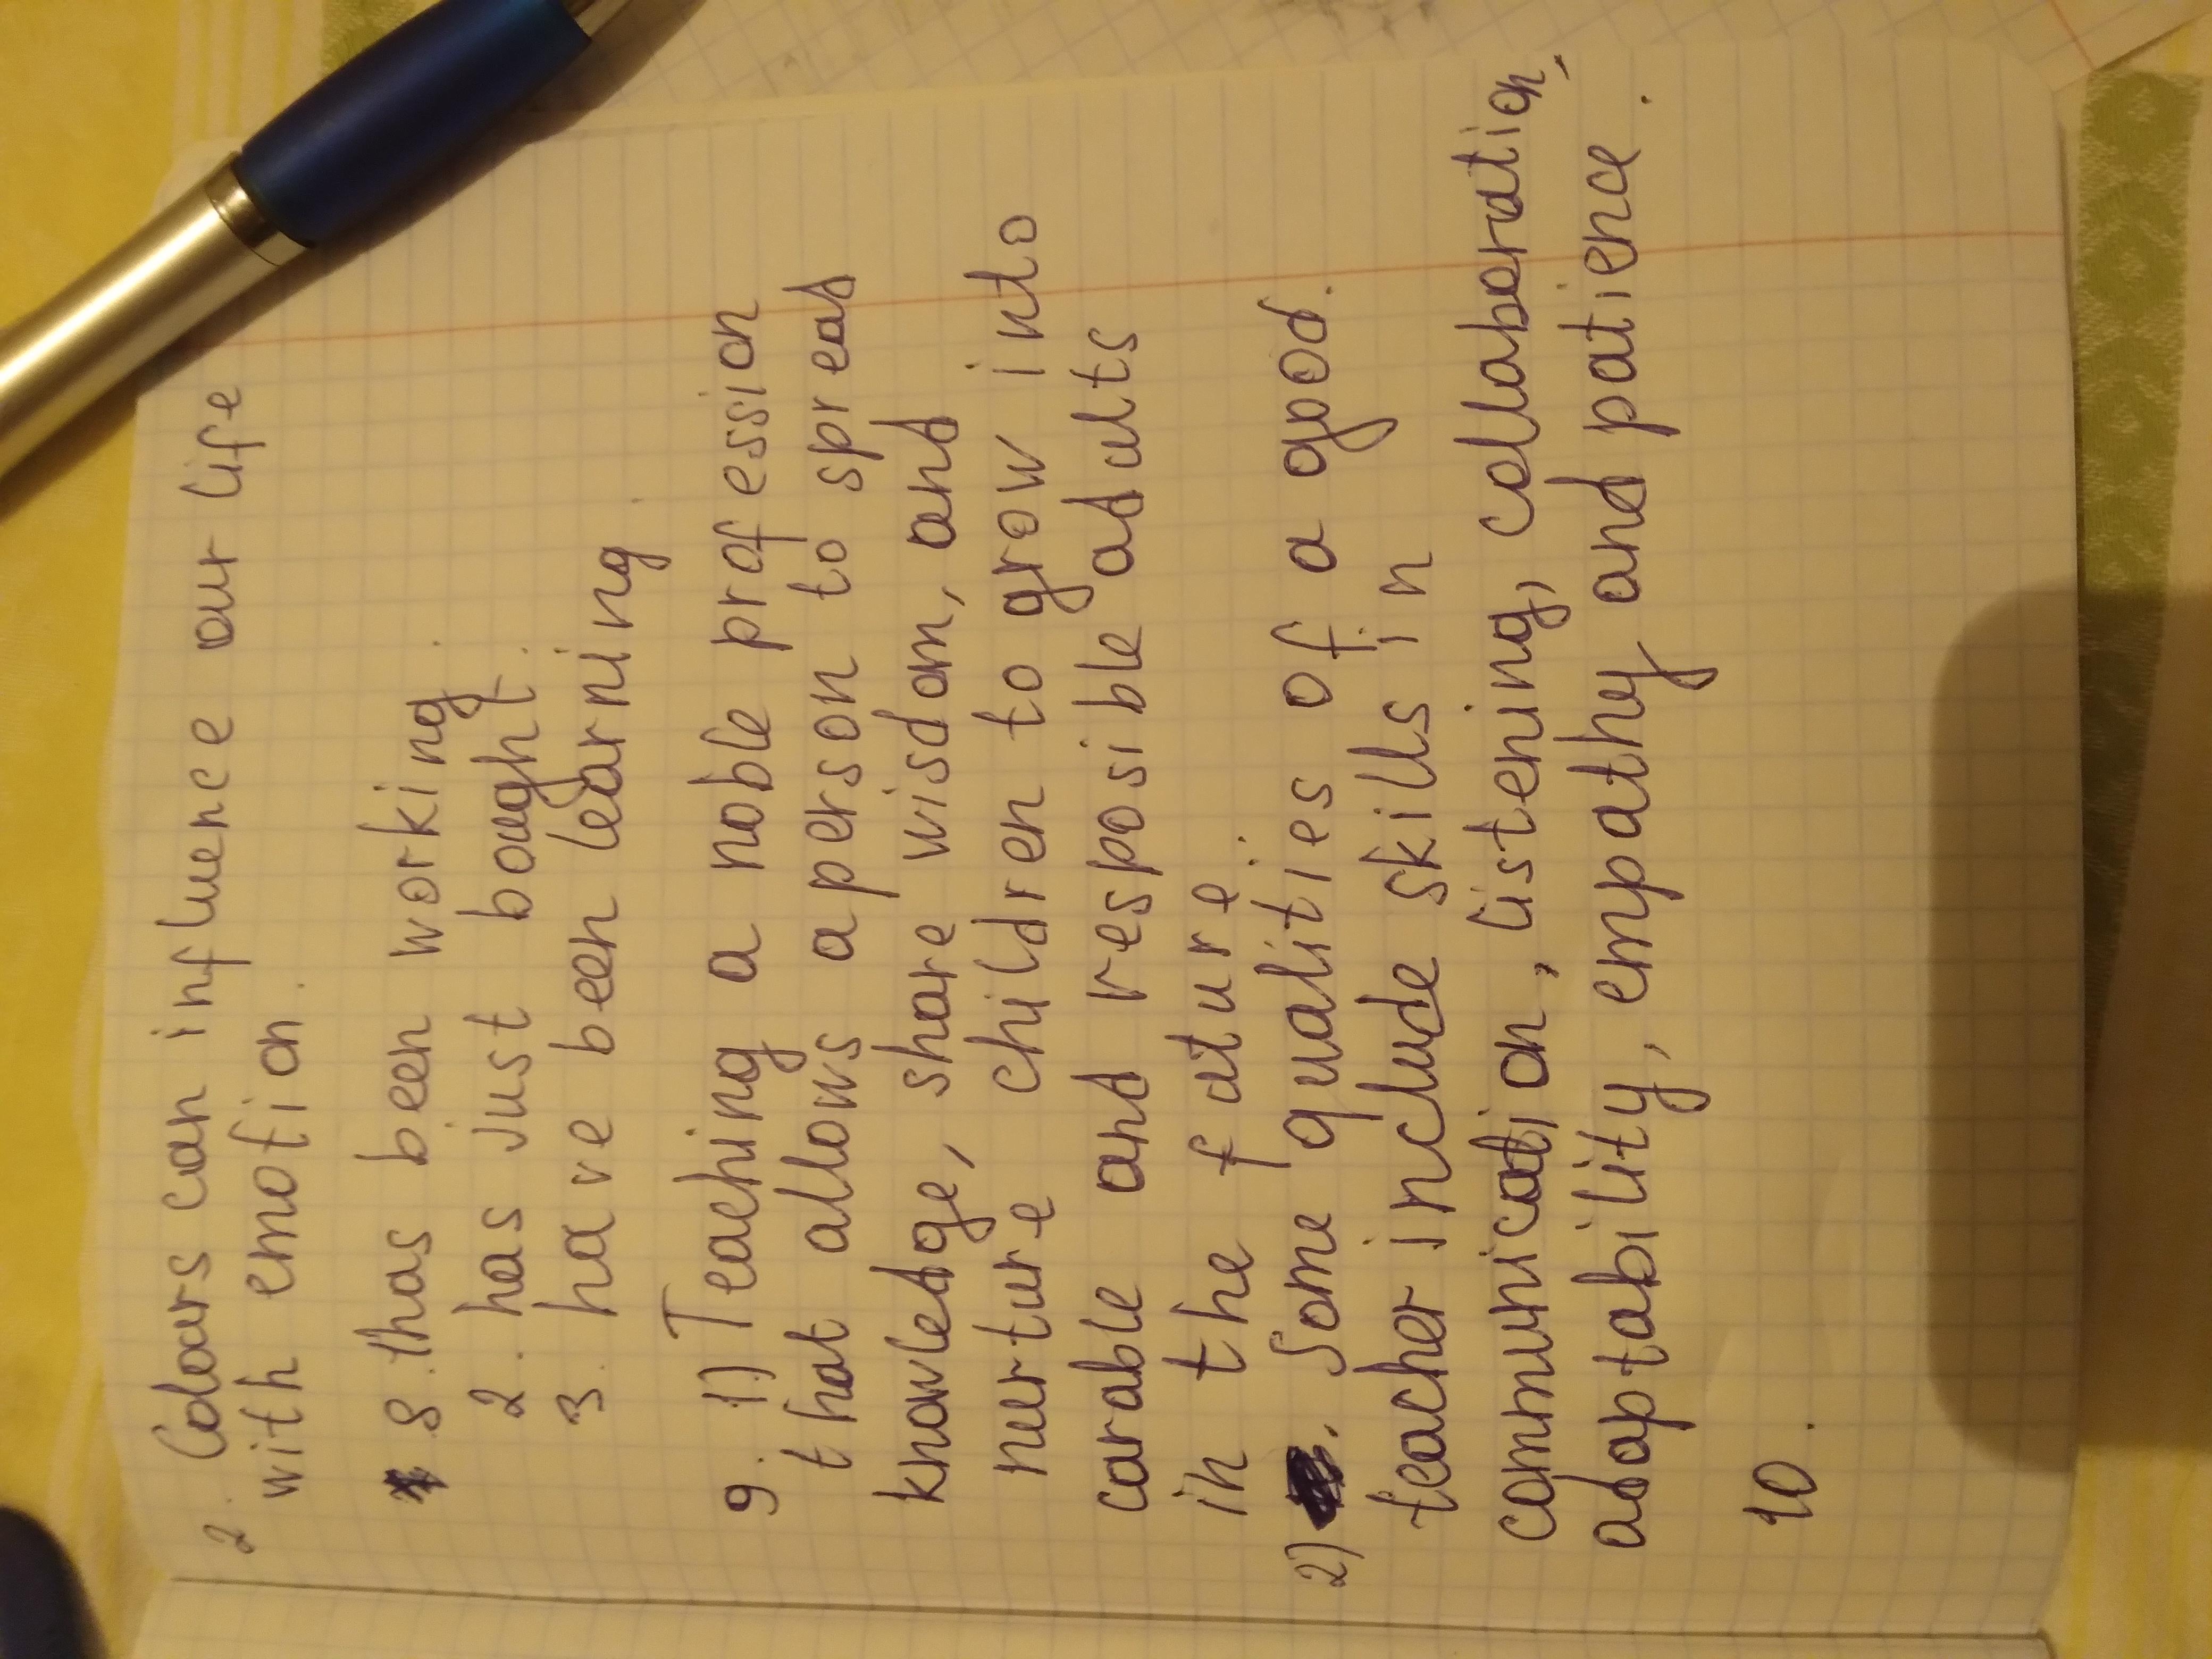 2. Colours can influence our life
with emotion.
8. 1 has been working
2. has just bought.
3. have been learning
9. 1) Teaching a noble profession
that allows a person to spread
knowledge, share wisdom, and
nurture children to grow into
carable and resposible adults
in the future
2) . Some qualities of a good.
teacher include skills in
communication, listening, collaboration,
adaptability, empathy and patience.
10.